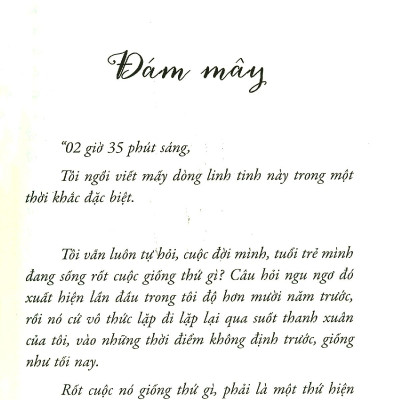 Đám mây
“02 giờ 35 phút sáng,
Tôi ngồi viết mấy dòng linh tinh này trong một
thời khắc đặc biệt.
Tôi vẫn luôn tự hỏi, cuộc đời mình, tuổi trẻ mình
đang sống rốt cuộc giống thứ gì? Câu hỏi ngu ngơ đó
xuất hiện lần đầu trong tôi độ hơn mười năm trước,
rồi nó cứ vô thức lặp đi lặp lại qua suốt thanh xuân
của tôi, vào những thời điểm không định trước, giống
như tối nay.
Rốt cuộc nó giống thứ gì, phải là một thứ hiện